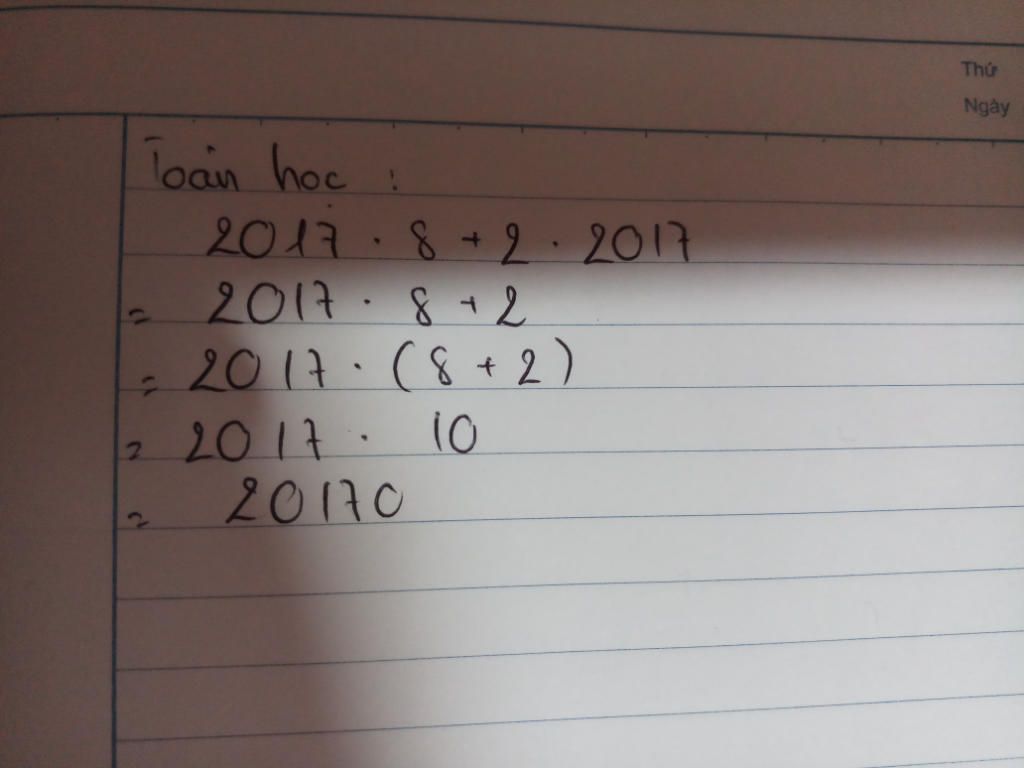 Thứ
Ngày
Toán học :
2017 . 8 + 2 . 2017
= 2017 . 8 + 2
= 2017 . ( 8 + 2 )
= 2017 . 10
= 20170